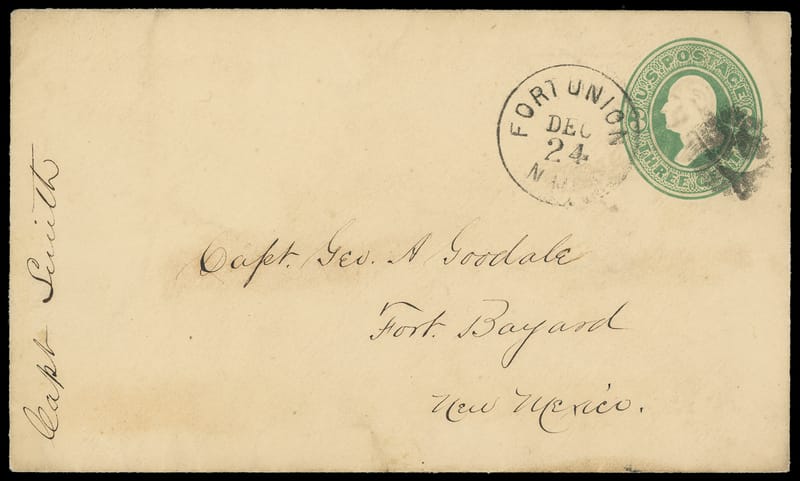 U.S. POSTAGE
THREE CENTS
FORT UNION
DEC
24
N.M.
Capt. Geo. A Goodale
Fort. Bayard
New Mexico.
Capt Smith